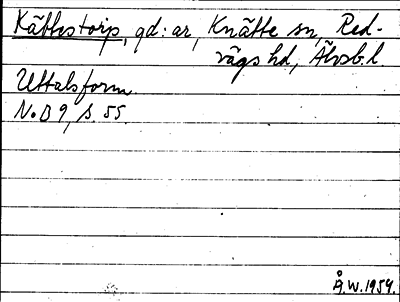 Kättestorp, gd:ar, Knätte sn, Red-
vägs hd, Älvsb. l.
Uttalsform
N.D 9, s. 55.
Å.W. 1954.